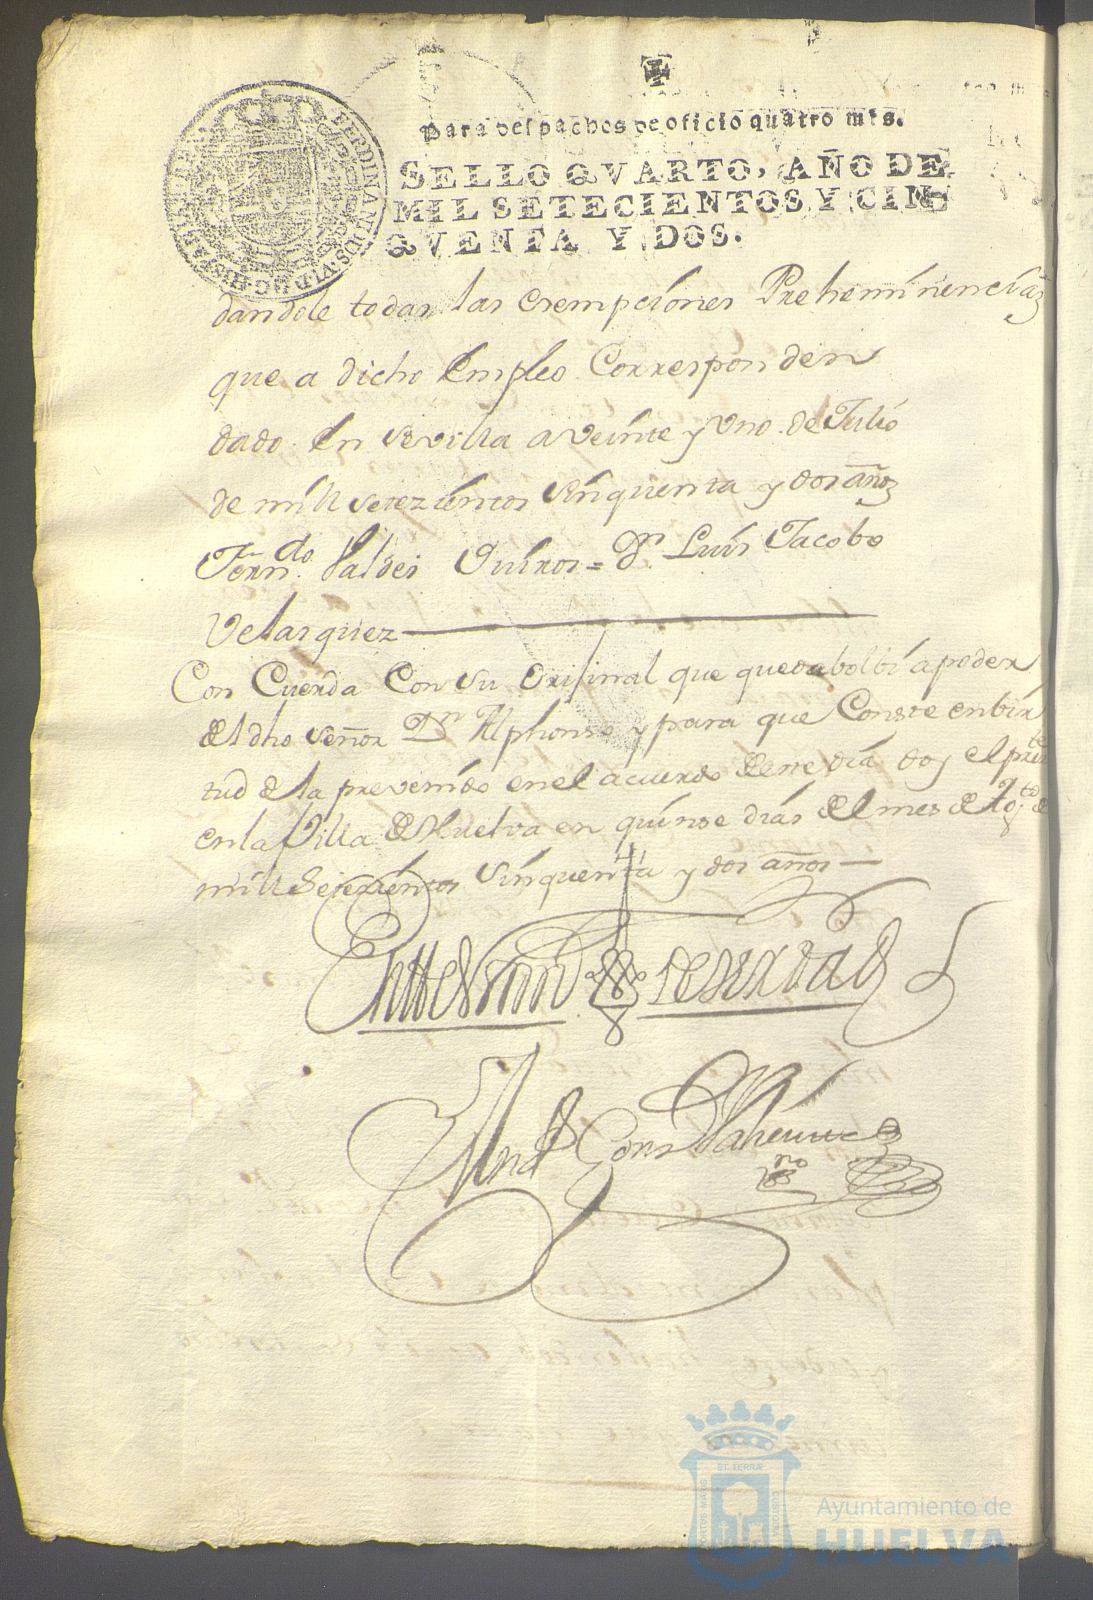 Para despachos de oficio quatro mrs.
SELLO QVARTO, AÑO DE
MIL SETECIENTOS Y CIN
QVENTA Y DOS.
FERDINANDUS VI D G HISPANIAR REX
dandole todas las Exempciones Preheminencias
que a dicho Empleo Corresponden
dado en Sevilla a veinte y uno de Julio
de mill setezientos sinquenta y dos años
Ferndo. Valdes Quiros = Dn. Luis Jacobo
Velasquez
Con Cuerda Con su Orijinal que que da bolbi a poder
del dho señor Dn Alphonso y para que Conste en bir
tud de lo prevenido en el acuerdo de este dia doy el preste
en la Villa de Huelva en quinse dias del mes de Agto de
mill Setezientos sinquenta y dos años
Ayuntamiento de
HUELVA